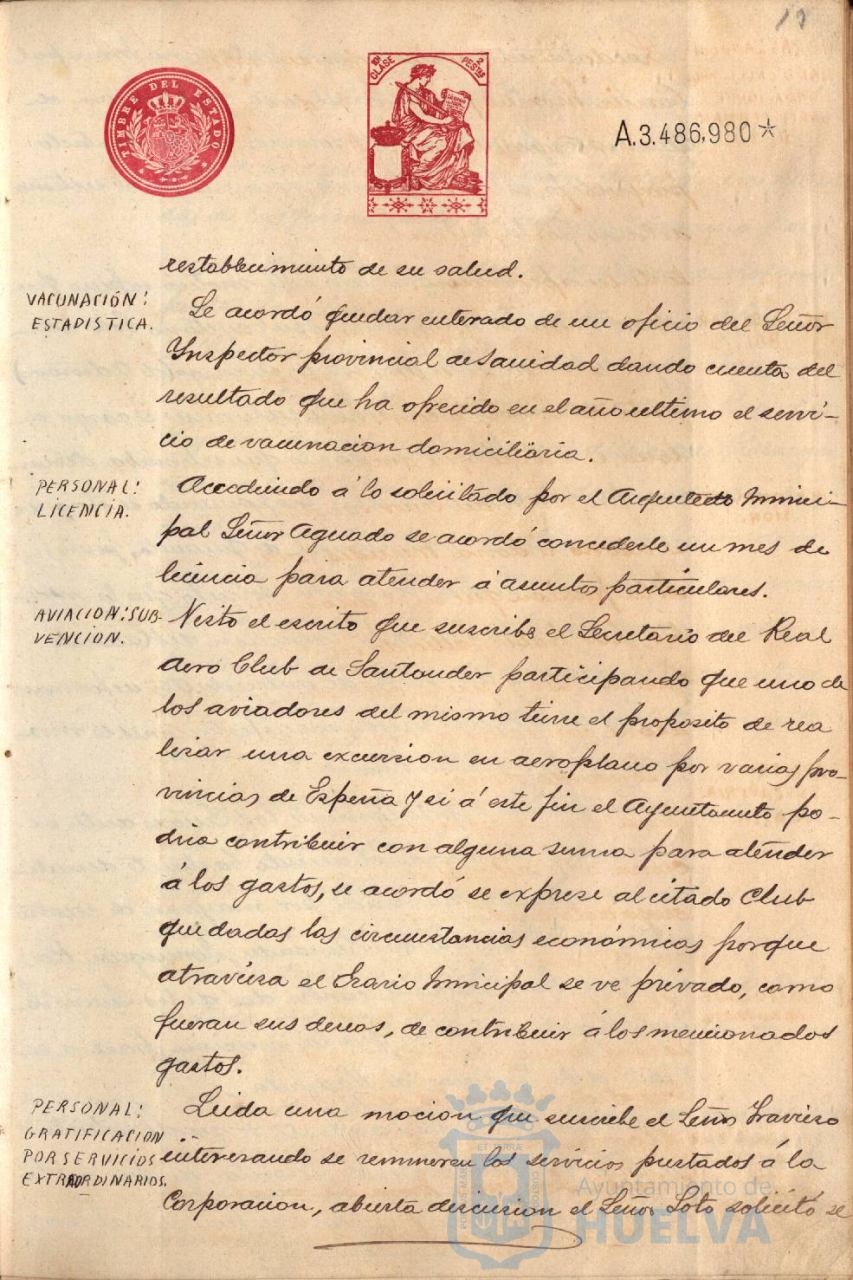 19
TIMBRE DEL ESTADO
10ª CLASE 2 PESTAS
A.3.486,980*
restablecimiento de su salud.
VACUNACIÓN:
ESTADISTICA.
Se acordó quedar enterado de un oficio del Señor
Ynspector provincial de Sanidad dando cuenta del
resultado que ha ofrecido en el año ultimo el servi-
cio de vacunacion domiciliaria.
PERSONAL:
LICENCIA.
Accediendo á lo solicitado por el Arquitecto Munici-
pal Señor Aguado se acordó concederle un mes de
licencia para atender á asuntos particulares.
AVIACION: SUB-
VENCION.
Visto el escrito que suscribe el Secretario del Real
Aero Club de Santander participando que uno de
los aviadores del mismo tiene el proposito de rea
lizar una excursion en aeroplano por varias pro-
vincias de España y si á este fin el Ayuntamiento po-
dria contribuir con alguna suma para atender
á los gastos, se acordó se exprese al citado Club
que dadas las circunstancias económicas porque
atraviesa el Erario Municipal se ve privado, como
fueran sus deseos, de contribuir á los mencionados
gastos.
PERSONAL:
GRATIFICACION
POR SERVICIOS
EXTRAORDINARIOS.
Leida una mocion que suscribe el Señor Travieso
interesando se remuneren los servicios prestados á la
Corporacion, abierta discusion el Señor Soto solicitó se
Ayuntamiento de
HUELVA